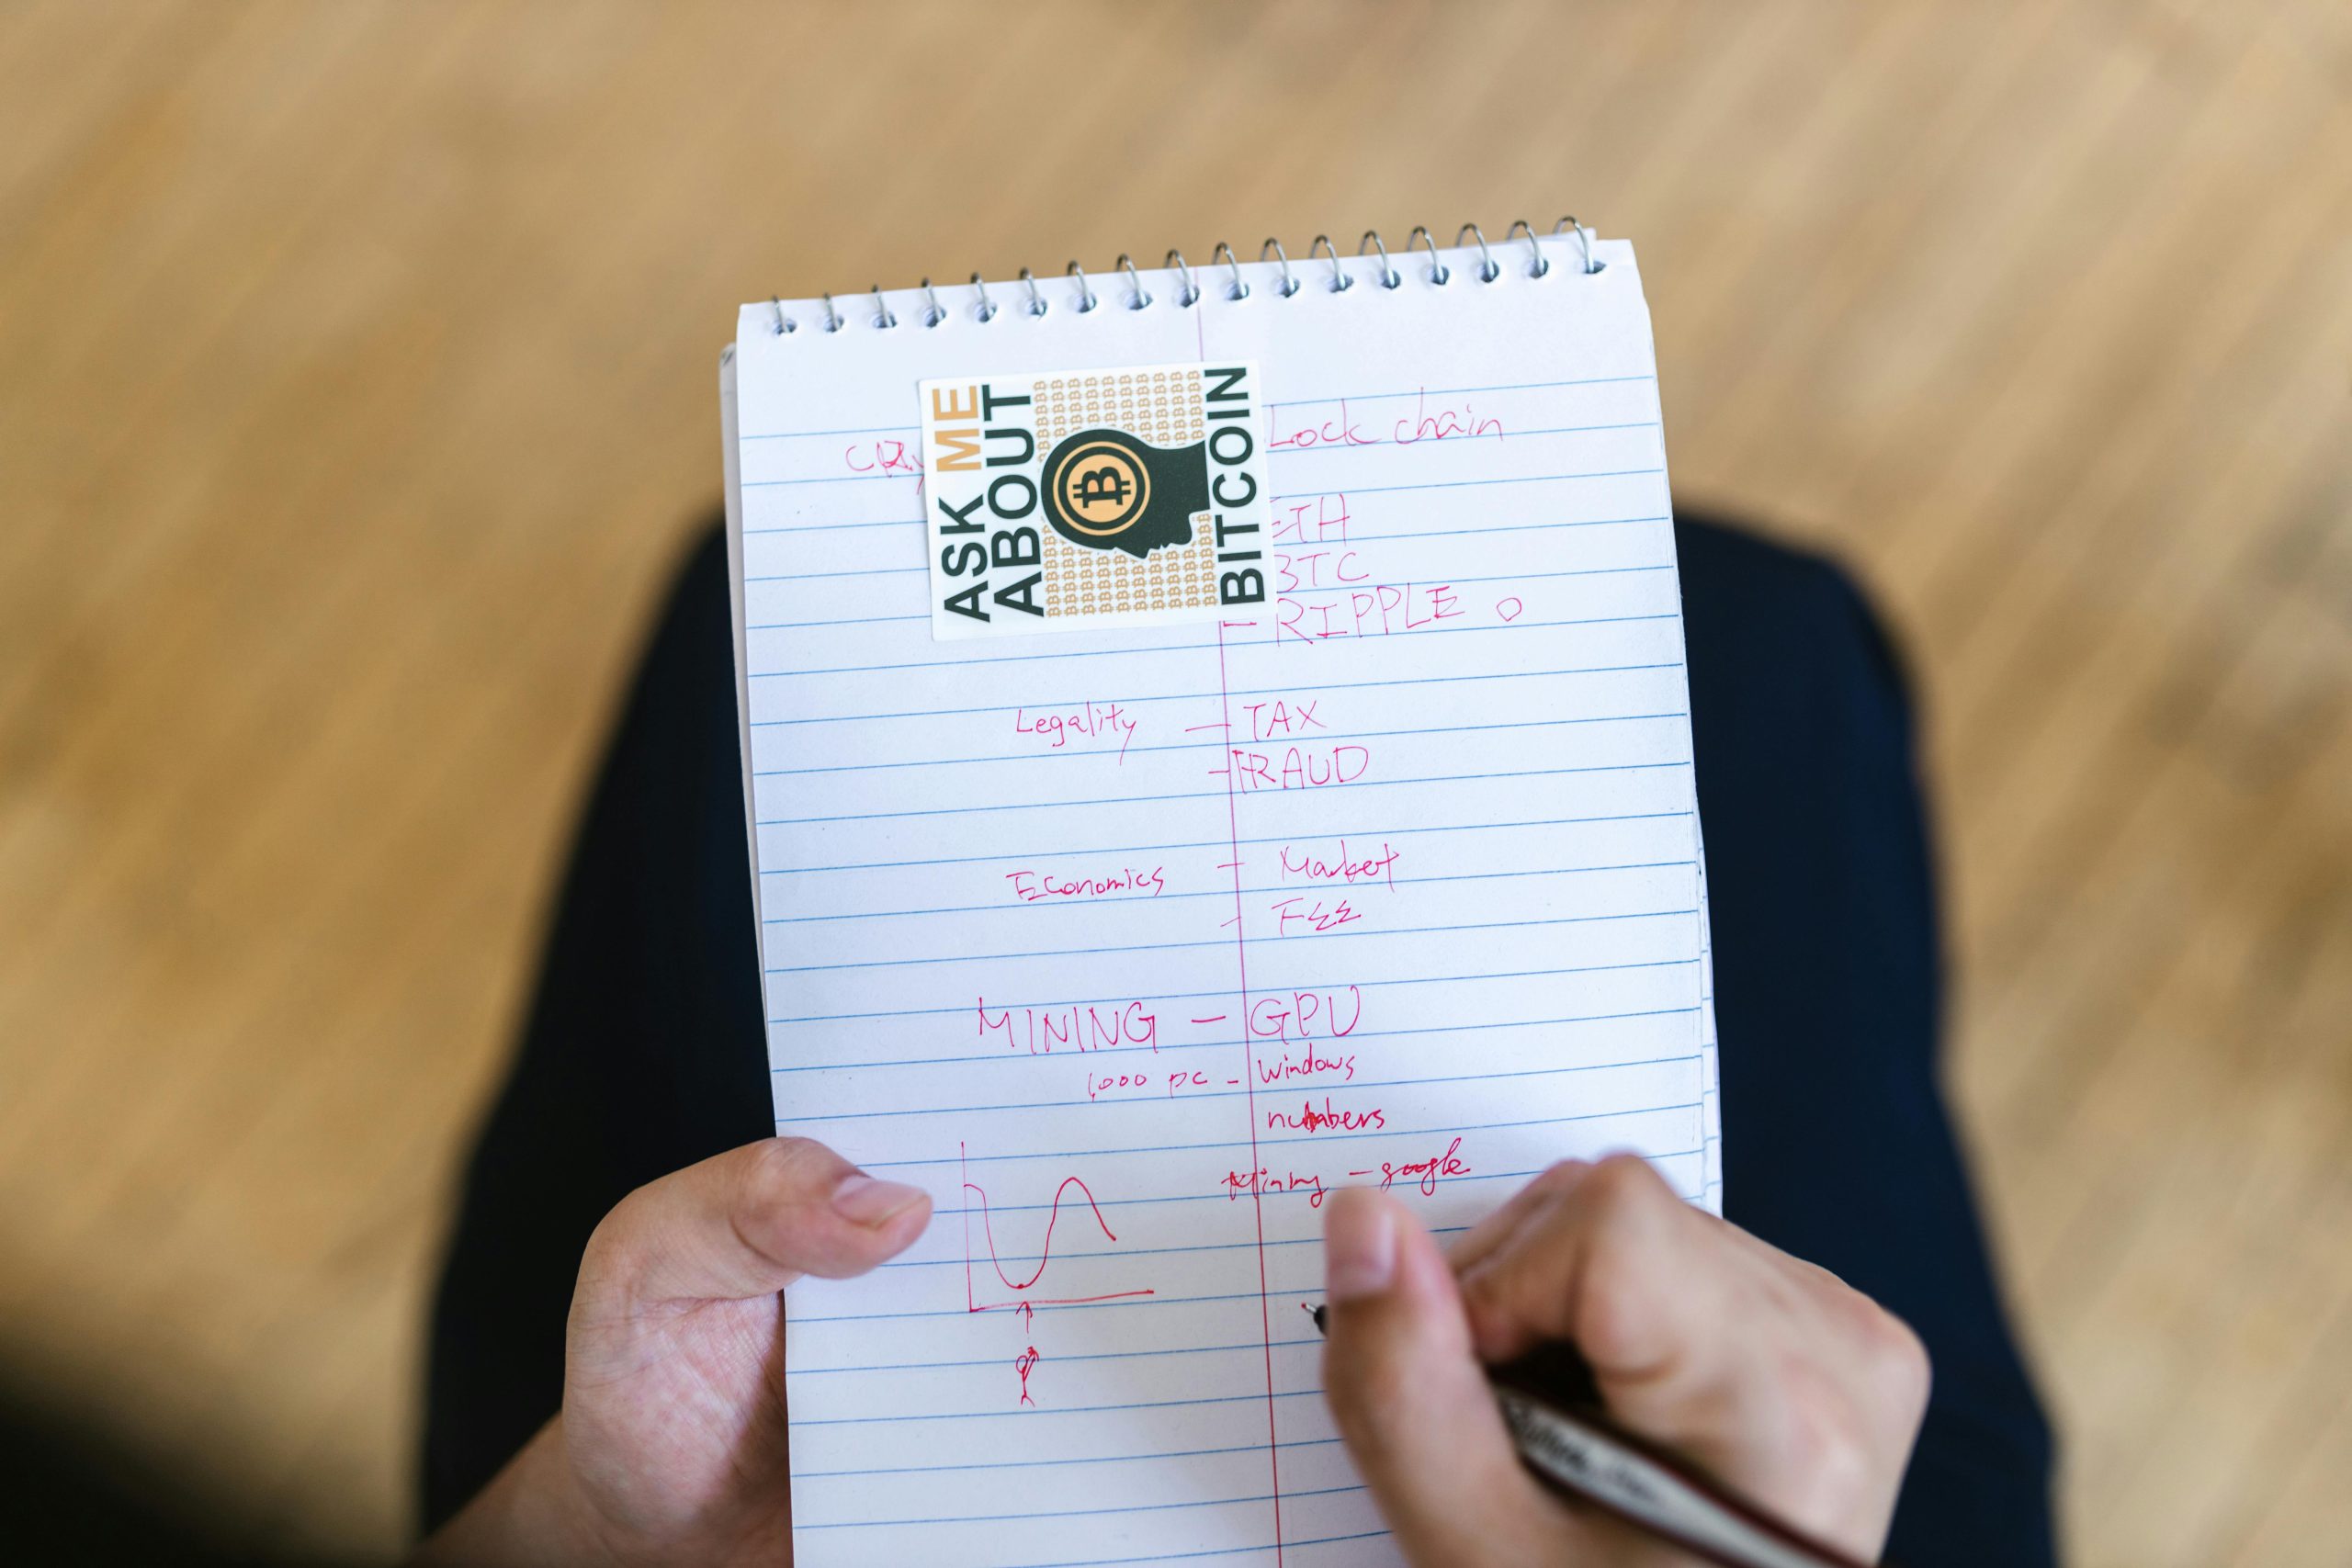 ASK ME
ABOUT
BITCOIN
Lock chain
ETH
BTC
- RIPPLE o
Legality - TAX
- FRAUD
Economics - Market
- FEE
MINING - GPU
1,000 pc - Windows
numbers
Mining - google